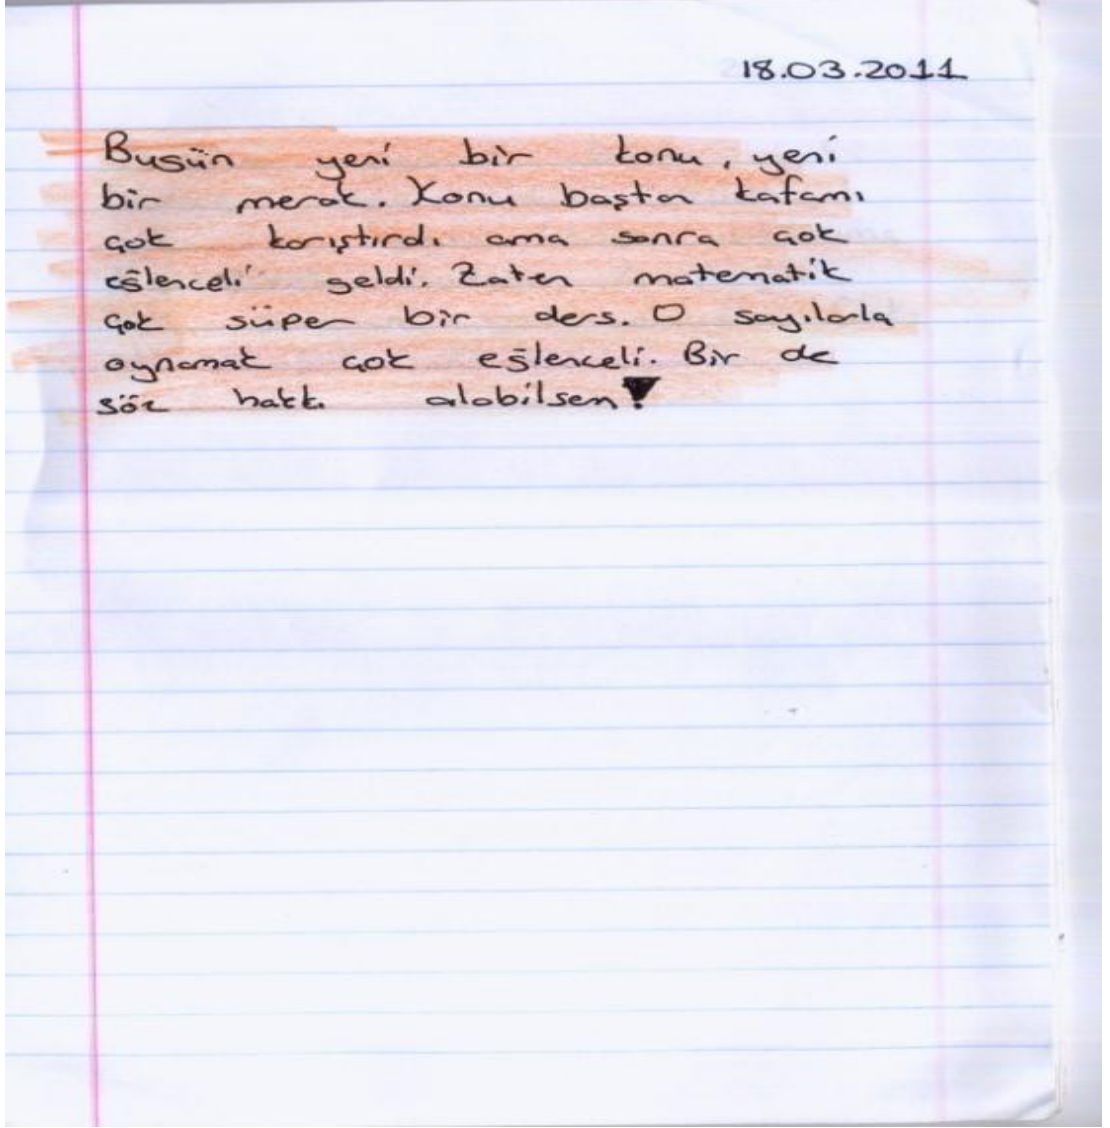 18.03.2011
Bugün yeni bir konu, yeni
bir merak. Konu baştan kafamı
çok karıştırdı ama sonra çok
eğlenceli geldi. Zaten matematik
çok süper bir ders. O sayılarla
oynamak çok eğlenceli. Bir de
söz hakkı alabilsem!